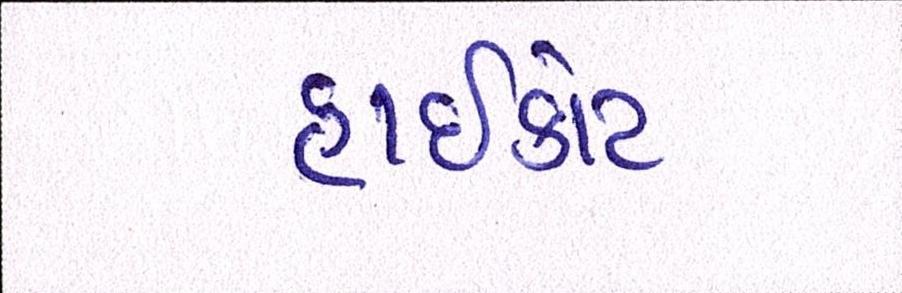 હાઈકોટ